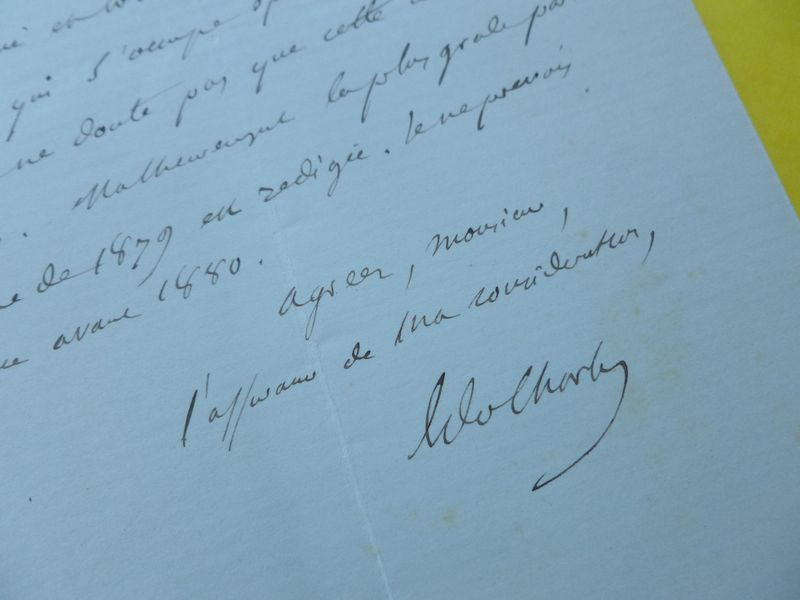 qui s'occupe
ne doute pas que cette
Malheureusement la plus grade par
de 1879 est redigée. Je ne prevois
avant 1880.
agreer, monsieur,
l'assurance de ma consideration,